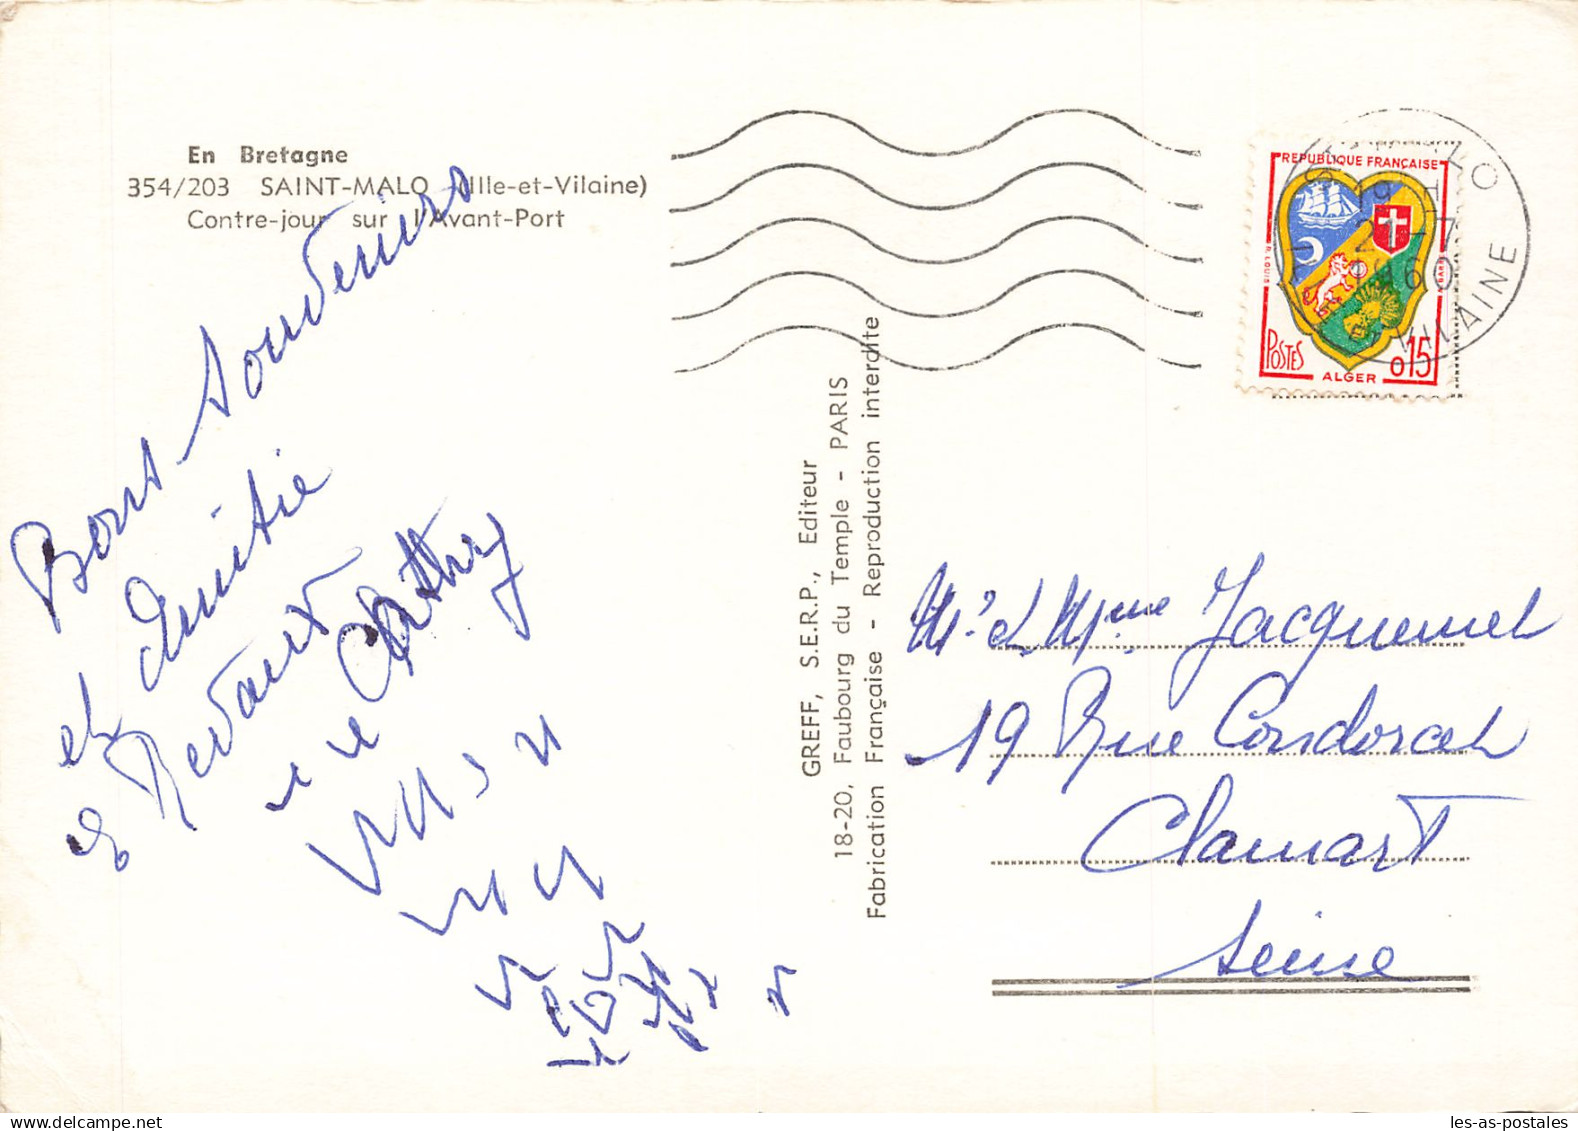 En Bretagne
354/203 SAINT-MALO (Ille-et-Vilaine)
Contre-jour sur l'Avant-Port
REPUBLIQUE FRANÇAISE
POSTES
ALGER
0,15
19 H
21-7
1960
VILAINE
Bons souvenirs
et Amitie
Cathy
GREFF, S.E.R.P., Editeur
18-20, Faubourg du Temple - PARIS
Fabrication Française - Reproduction interdite
Mr et Mme Jacquemel
19 Rue Condorcet
Clamart
Seine
les-as-postales